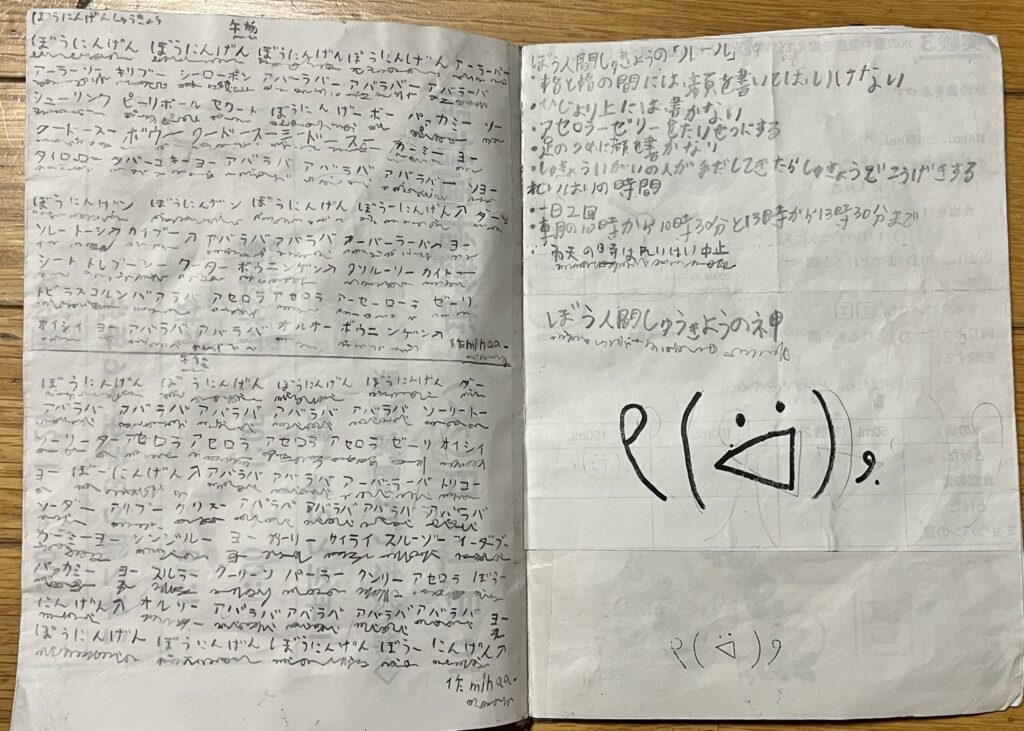 ぼうにんげんしゅうきょう
午前
ぼうにんげん ぼうにんげん ぼうにんげん ぼうにんげん アーラーバー
アーラーソー キリブー シーローポン アバーラバー アバラバー アバラバ
シューリンク ビーリポール セクート ぼうにんげーボー バァカミー ソー
クードースー ボウウー クードースーミード ニースニー カーミニー ヨー
タイロロー タバーコキーヨー アバラバ アバラバ アバラバー ソヨー
ぼうにんゲン ぼうにんゲン ぼうにんげん ぼうーにんげーん↗ ダーン
ソレートーン↗ カイブーユ アバラバ アバラバ アーバーラーバ↗ ヨー
シート トレブーシー クーダー ボウニンゲン↗ クソルーソー カイトニー
トビラスコルン バアラバ アセロラ アセロラ アーセーローラ ゼーリ
オイシイ ヨー アバラバ アバラバー オルオー ボウニンゲン↗
作m/haa.
ぼうにんげん ぼうにんげん ぼうにんげん ぼうにんげん ダー
アバラバ アバラバ アバラバ アバラバ アバラバ ソーリートー
ソーリーター アセロラ アセロラ アセロラ アセロラ ゼーリ オイシイ
ヨー ぼーにんげん↗ アバラバ アバラバ アーバーラバー トリコー
ソーダー アリブー クリスー アバラバ アバラバ アバラバ アバラバ
カーミーヨー シンジルー ヨー カーリー ケイライ スルーゾー イーダブー
バァカミー ヨー スルラー クーリーン パーラー クンリー アセロラ ぼうー
にんげん↗ オルリー アバラバ アバラバ アバラバ アバラバ ヨー
ぼうにんげん ぼうにんげん ぼうにんげん ぼうー にんげん↗
作m/haa.
ぼう人間しゅきょうの「ルール」
・指と指の間には、顔を書いてはいけない
・ひじより上には書かない
・アセロラーゼリーをたいせつにする
・足のつめに顔を書かない
・しゅきょういがいの人が手だしてきたらしゅきょうでこうげきする
れいはいの時間
・一日2回
・朝の10時から10時30分と13時から13時30分まで
・雨天の時はれいはい中止
ぼう人間しゅうきょうの神